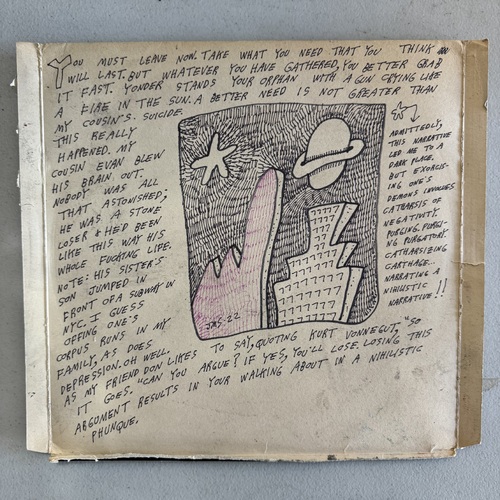 YOU MUST LEAVE NOW. TAKE WHAT YOU NEED THAT YOU THINK
WILL LAST. BUT WHATEVER YOU HAVE GATHERED, YOU BETTER GRAB
IT FAST. YONDER STANDS YOUR ORPHAN WITH A GUN CRYING LIKE
A FIRE IN THE SUN. A BETTER NEED IS NOT GREATER THAN
MY COUSIN'S SUICIDE.
THIS REALLY
HAPPENED. MY
COUSIN EVAN BLEW
HIS BRAIN OUT.
NOBODY WAS ALL
THAT ASTONISHED;
HE WAS A STONE
LOSER & HE'D BEEN
LIKE THIS WAY HIS
WHOLE FUCKING LIFE.
NOTE: HIS SISTER'S
SON JUMPED IN
FRONT OF A SUBWAY IN
NYC. I GUESS
OFFING ONE'S
CORPUS RUNS IN MY
FAMILY, AS DOES
DEPRESSION. OH WELL.
AS MY FRIEND DON LIKES TO SAY, QUOTING KURT VONNEGUT, "SO
IT GOES. "CAN YOU ARGUE? IF YES, YOU'LL LOSE. LOSING THIS
ARGUMENT RESULTS IN YOUR WALKING ABOUT IN A NIHILISTIC
PHUNQUE.
ADMITTEDLY,
THIS NARRATIVE
LED ME TO A
DARK PLACE.
BUT EXORCIS-
ING ONE'S
DEMONS INVOLVES
CATHARSIS OF
NEGATIVITY.
PURGING. PURGING
PURGATORY.
CATHARSIZING
CARTHAGE.
NARRATING A
NIHILISTIC
NARRATIVE!!
JXS-22